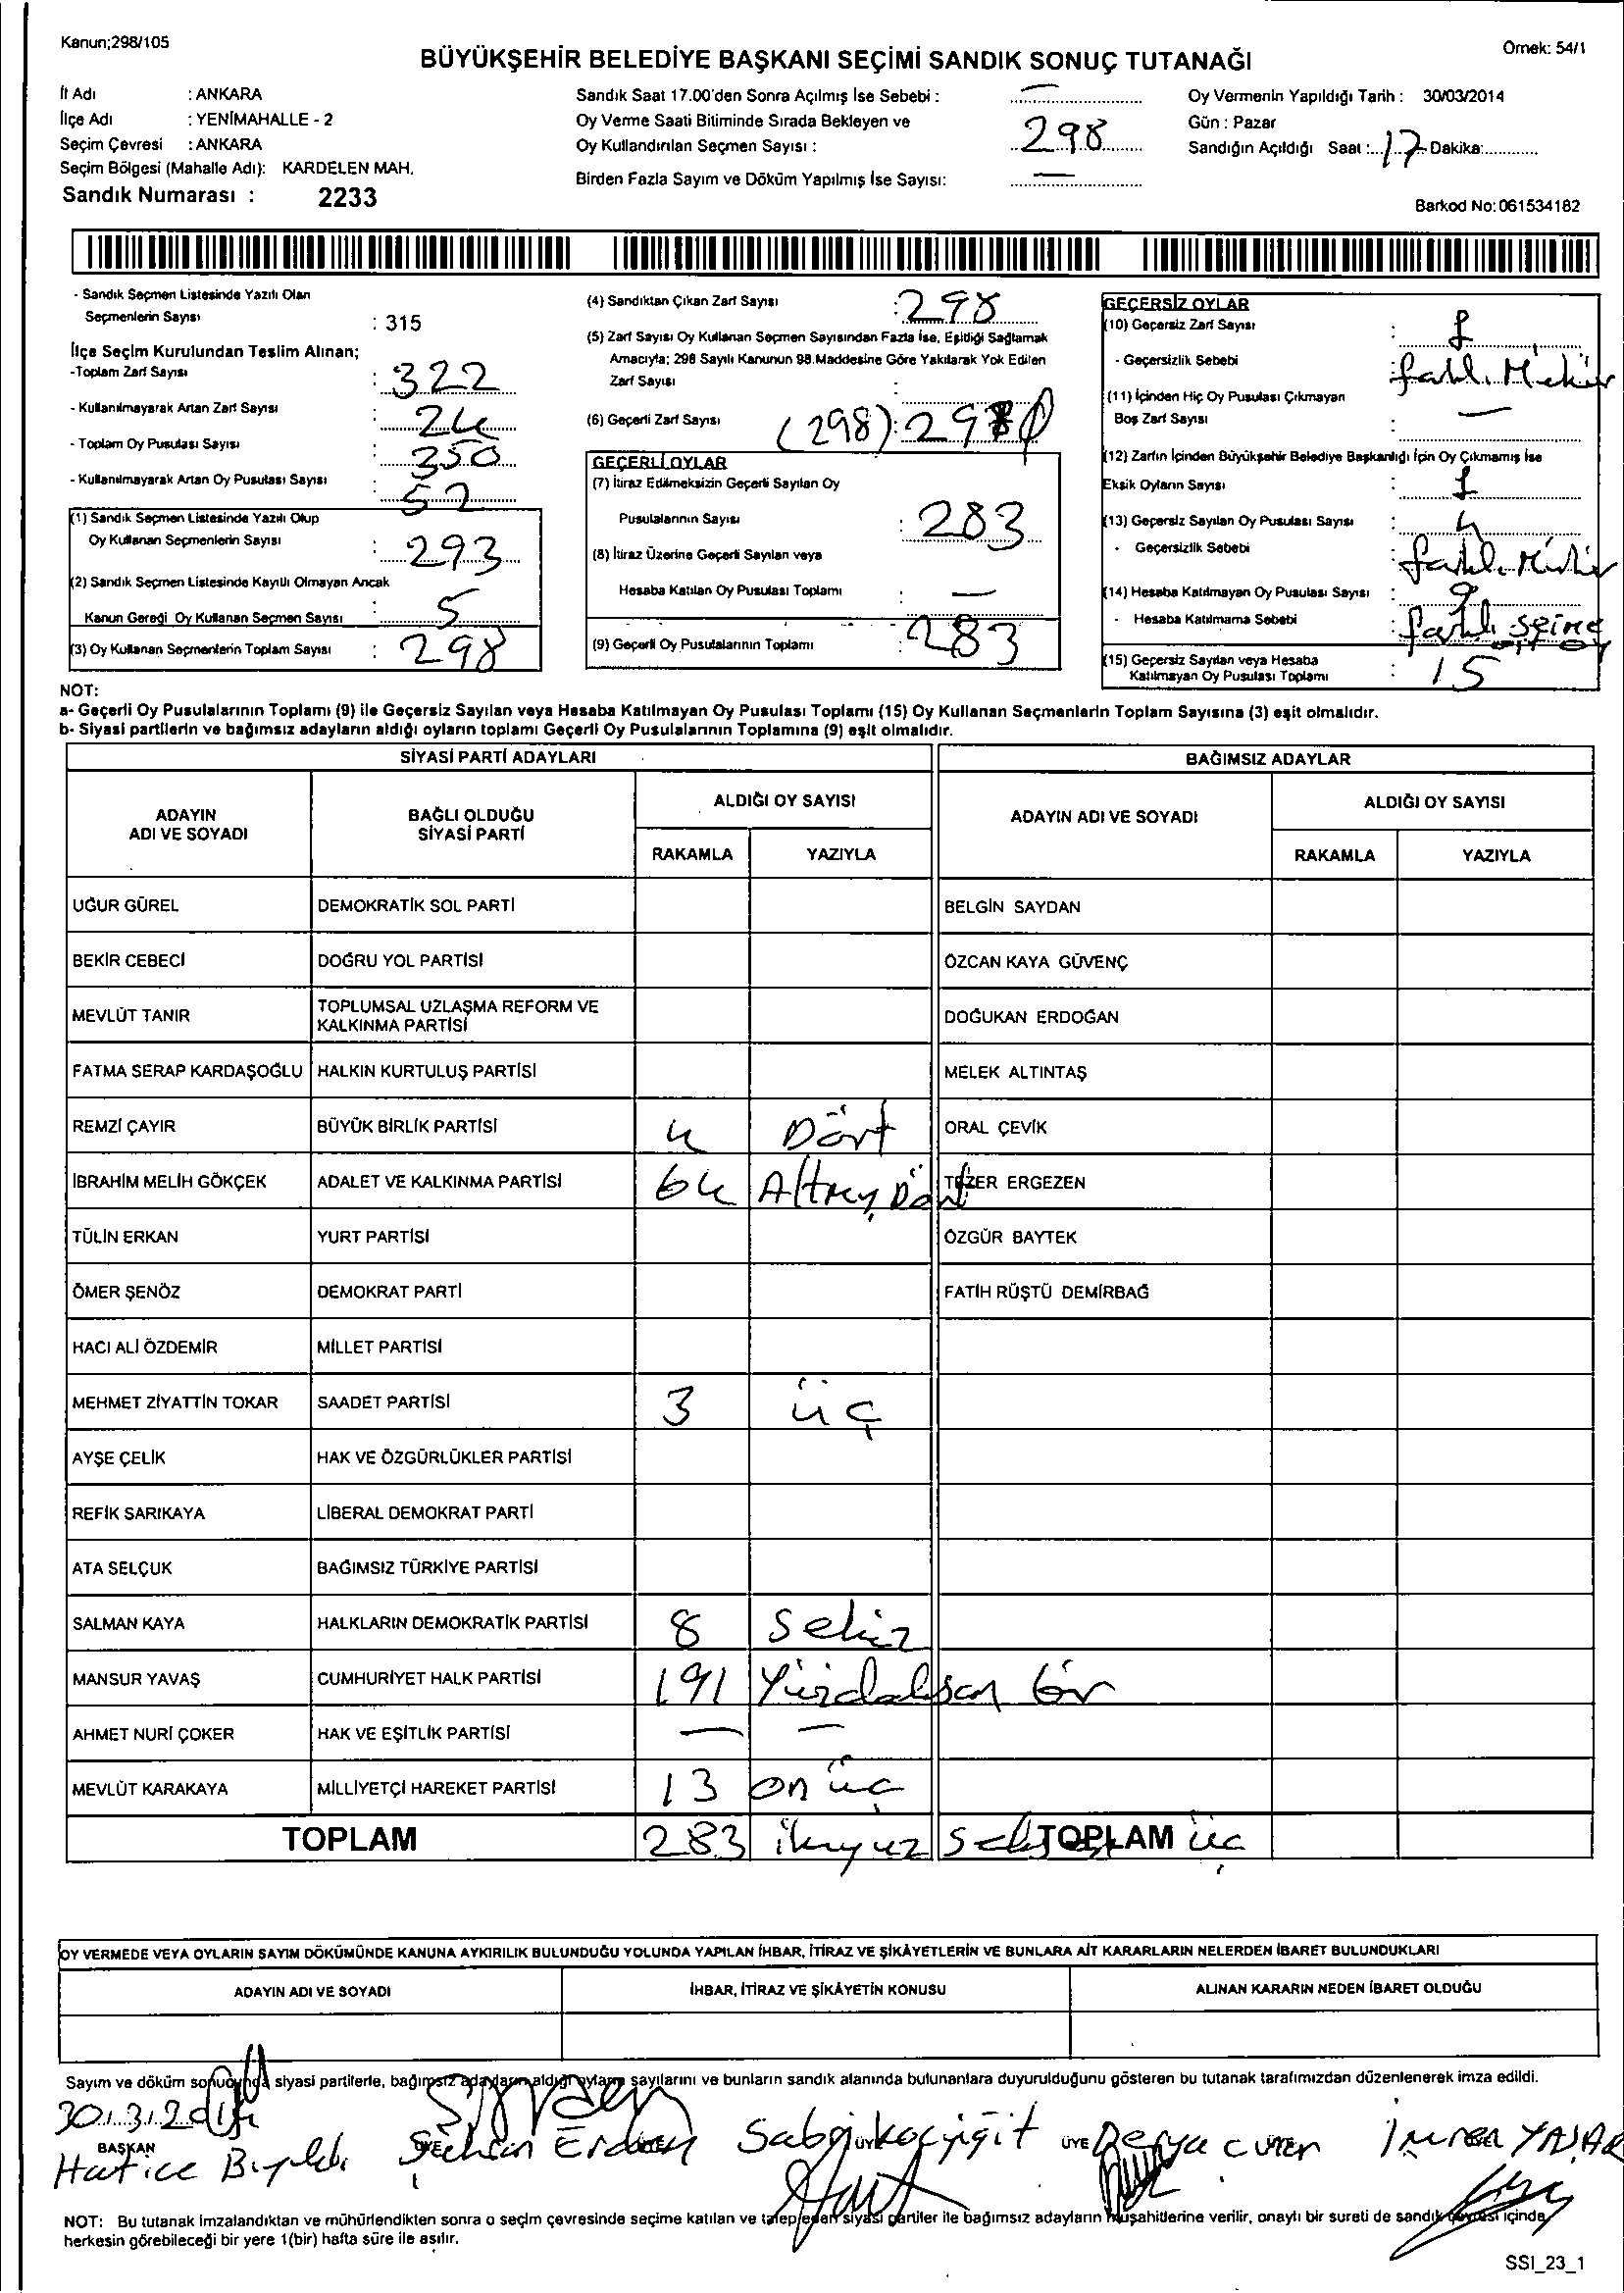 Kanun;298/105
Örnek: 54/1
BÜYÜKŞEHİR BELEDİYE BAŞKANI SEÇİMİ SANDIK SONUÇ TUTANAĞI
İl Adı : ANKARA
İlçe Adı : YENİMAHALLE - 2
Seçim Çevresi : ANKARA
Seçim Bölgesi (Mahalle Adı): KARDELEN MAH.
Sandık Numarası : 2233
Sandık Saat 17.00'den Sonra Açılmış İse Sebebi : —
Oy Verme Saati Bitiminde Sırada Bekleyen ve
Oy Kullandırılan Seçmen Sayısı : 298
Birden Fazla Sayım ve Döküm Yapılmış İse Sayısı: —
Oy Vermenin Yapıldığı Tarih : 30/03/2014
Gün : Pazar
Sandığın Açıldığı Saat : 17 Dakika:
Barkod No:061534182
- Sandık Seçmen Listesinde Yazılı Olan
Seçmenlerin Sayısı : 315
İlçe Seçim Kurulundan Teslim Alınan;
-Toplam Zarf Sayısı : 322
- Kullanılmayarak Artan Zarf Sayısı : 24
- Toplam Oy Pusulası Sayısı : 350
- Kullanılmayarak Artan Oy Pusulası Sayısı : 52
(1) Sandık Seçmen Listesinde Yazılı Olup
Oy Kullanan Seçmenlerin Sayısı : 293
(2) Sandık Seçmen Listesinde Kayıtlı Olmayan Ancak
Kanun Gereği Oy Kullanan Seçmen Sayısı : 5
(3) Oy Kullanan Seçmenlerin Toplam Sayısı : 298
(4) Sandıktan Çıkan Zarf Sayısı : 298
(5) Zarf Sayısı Oy Kullanan Seçmen Sayısından Fazla İse, Eşitliği Sağlamak
Amacıyla; 298 Sayılı Kanunun 98.Maddesine Göre Yakılarak Yok Edilen
Zarf Sayısı :
(6) Geçerli Zarf Sayısı (298) :
GEÇERLİ OYLAR
(7) İtiraz Edilmeksizin Geçerli Sayılan Oy
Pusulalarının Sayısı : 283
(8) İtiraz Üzerine Geçerli Sayılan veya
Hesaba Katılan Oy Pusulası Toplamı : —
(9) Geçerli Oy Pusulalarının Toplamı : 283
GEÇERSİZ OYLAR
(10) Geçersiz Zarf Sayısı : 1
- Geçersizlik Sebebi : farklı Mühür
(11) İçinden Hiç Oy Pusulası Çıkmayan
Boş Zarf Sayısı : —
(12) Zarfın İçinden Büyükşehir Belediye Başkanlığı İçin Oy Çıkmamış İse
Eksik Oyların Sayısı : 1
(13) Geçersiz Sayılan Oy Pusulası Sayısı : 4
- Geçersizlik Sebebi : farklı Mühür
(14) Hesaba Katılmayan Oy Pusulası Sayısı : 9
- Hesaba Katılmama Sebebi : farklı seçime
(15) Geçersiz Sayılan veya Hesaba
Katılmayan Oy Pusulası Toplamı : 15
NOT:
a- Geçerli Oy Pusulalarının Toplamı (9) ile Geçersiz Sayılan veya Hesaba Katılmayan Oy Pusulası Toplamı (15) Oy Kullanan Seçmenlerin Toplam Sayısına (3) eşit olmalıdır.
b- Siyasi partilerin ve bağımsız adayların aldığı oyların toplamı Geçerli Oy Pusulalarının Toplamına (9) eşit olmalıdır.
SİYASİ PARTİ ADAYLARI BAĞIMSIZ ADAYLAR
ADAYIN ADI VE SOYADI BAĞLI OLDUĞU SİYASİ PARTİ ALDIĞI OY SAYISI ADAYIN ADI VE SOYADI ALDIĞI OY SAYISI
RAKAMLA YAZIYLA RAKAMLA YAZIYLA
UĞUR GÜREL DEMOKRATİK SOL PARTİ BELGİN SAYDAN
BEKİR CEBECİ DOĞRU YOL PARTİSİ ÖZCAN KAYA GÜVENÇ
MEVLÜT TANIR TOPLUMSAL UZLAŞMA REFORM VE KALKINMA PARTİSİ DOĞUKAN ERDOĞAN
FATMA SERAP KARDAŞOĞLU HALKIN KURTULUŞ PARTİSİ MELEK ALTINTAŞ
REMZİ ÇAYIR BÜYÜK BİRLİK PARTİSİ 4 Dört ORAL ÇEVİK
İBRAHİM MELİH GÖKÇEK ADALET VE KALKINMA PARTİSİ 64 Altmış Dört TEZER ERGEZEN
TÜLİN ERKAN YURT PARTİSİ ÖZGÜR BAYTEK
ÖMER ŞENÖZ DEMOKRAT PARTİ FATİH RÜŞTÜ DEMİRBAĞ
HACI ALİ ÖZDEMİR MİLLET PARTİSİ
MEHMET ZİYATTİN TOKAR SAADET PARTİSİ 3 üç
AYŞE ÇELİK HAK VE ÖZGÜRLÜKLER PARTİSİ
REFİK SARIKAYA LİBERAL DEMOKRAT PARTİ
ATA SELÇUK BAĞIMSIZ TÜRKİYE PARTİSİ
SALMAN KAYA HALKLARIN DEMOKRATİK PARTİSİ 8 Sekiz
MANSUR YAVAŞ CUMHURİYET HALK PARTİSİ 191 Yüzdoksan bir
AHMET NURİ ÇOKER HAK VE EŞİTLİK PARTİSİ — —
MEVLÜT KARAKAYA MİLLİYETÇİ HAREKET PARTİSİ 13 on üç
TOPLAM 283 ikiyüz seksen üç TOPLAM
OY VERMEDE VEYA OYLARIN SAYIM DÖKÜMÜNDE KANUNA AYKIRILIK BULUNDUĞU YOLUNDA YAPILAN İHBAR, İTİRAZ VE ŞİKÂYETLERİN VE BUNLARA AİT KARARLARIN NELERDEN İBARET BULUNDUKLARI
ADAYIN ADI VE SOYADI İHBAR, İTİRAZ VE ŞİKÂYETİN KONUSU ALINAN KARARIN NEDEN İBARET OLDUĞU
Sayım ve döküm sonucunda siyasi partilerle, bağımsız adayların aldığı oyların sayılarını ve bunların sandık alanında bulunanlara duyurulduğunu gösteren bu tutanak tarafımızdan düzenlenerek imza edildi.
30.3.2014
BAŞKAN ÜYE ÜYE
Hatice Erdem Koçyiğit Derya YAŞAR
NOT: Bu tutanak imzalandıktan ve mühürlendikten sonra o seçim çevresinde seçime katılan ve talep eden siyasi partiler ile bağımsız adayların müşahitlerine verilir, onaylı bir sureti de sandık çevresi içinde
herkesin görebileceği bir yere 1(bir) hafta süre ile asılır.
SSI_23_1